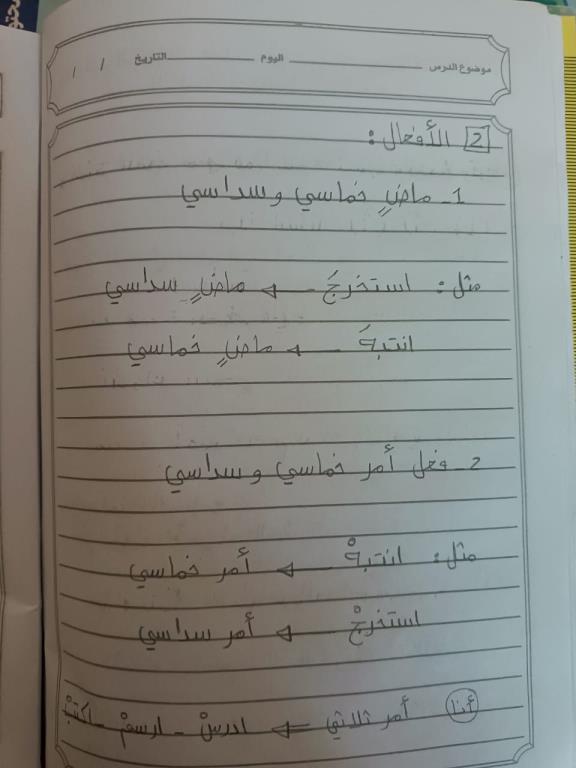 موضوع الدرس ____________ اليوم ____________ التاريخ / /
2 الأفعال :
1- ماضٍ خماسي وسداسي
مثل : استخرجَ ← ماضٍ سداسي
انتبهَ ← ماضٍ خماسي
2- فعل أمر خماسي وسداسي
مثل : انتبهْ ← أمر خماسي
استخرجْ ← أمر سداسي
أنا أمر ثلاثي ← ادرسْ - ارسمْ - اكتبْ